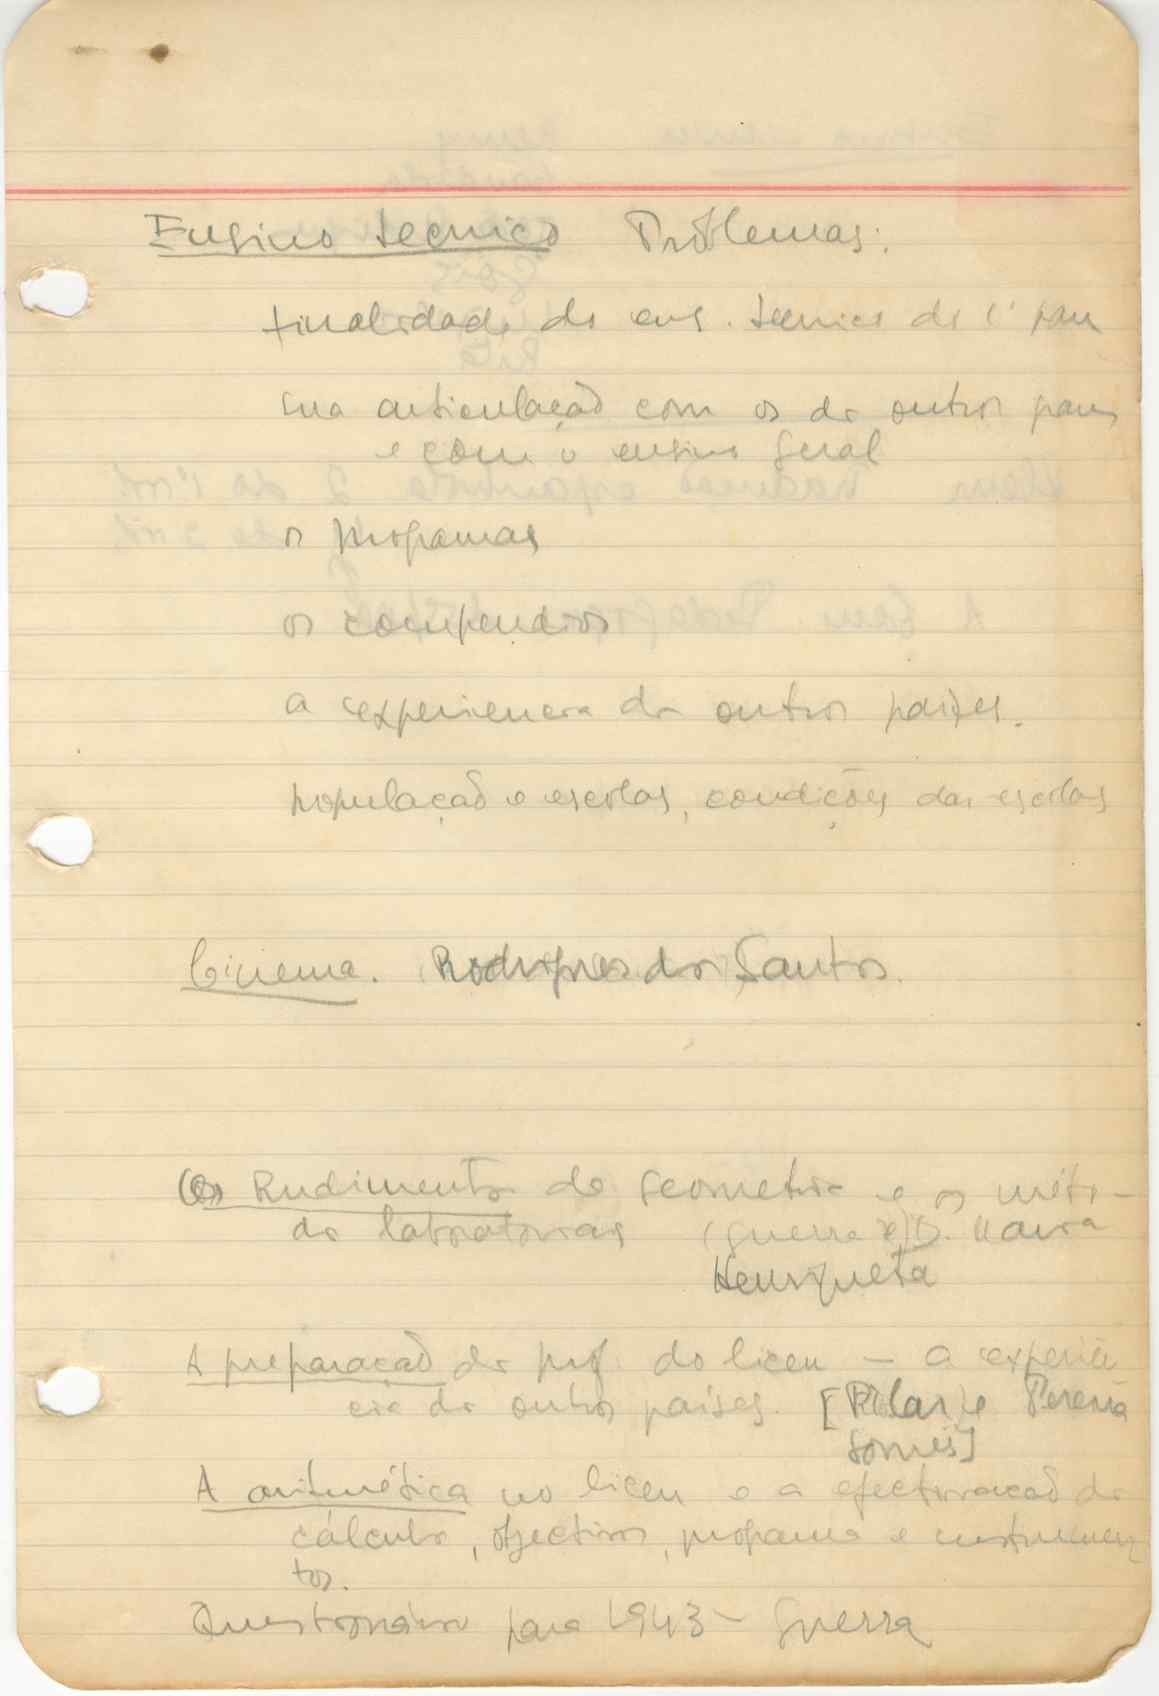 Ensino tecnico Problemas:
finalidade do ens. tecnico do 1º grau
sua articulação com os de outros graus
e com o ensino geral
os programas
os compendios
a experiencia de outros paises.
população e escolas, condições das escolas
Cinema. Rodrigues dos Santos.
Rudimentos de Geometria e os méto-
dos laboratoriais (Guerra e) D. Maria
Henriqueta
A preparação do prof. do liceu — a experiên
cia de outros países. [Pilar e Pereira
Gomes]
A aritmética no liceu e a efectivação do
cálculo, objectivos, programa e instrumen
tos.
Questionário para 1943 - Guerra